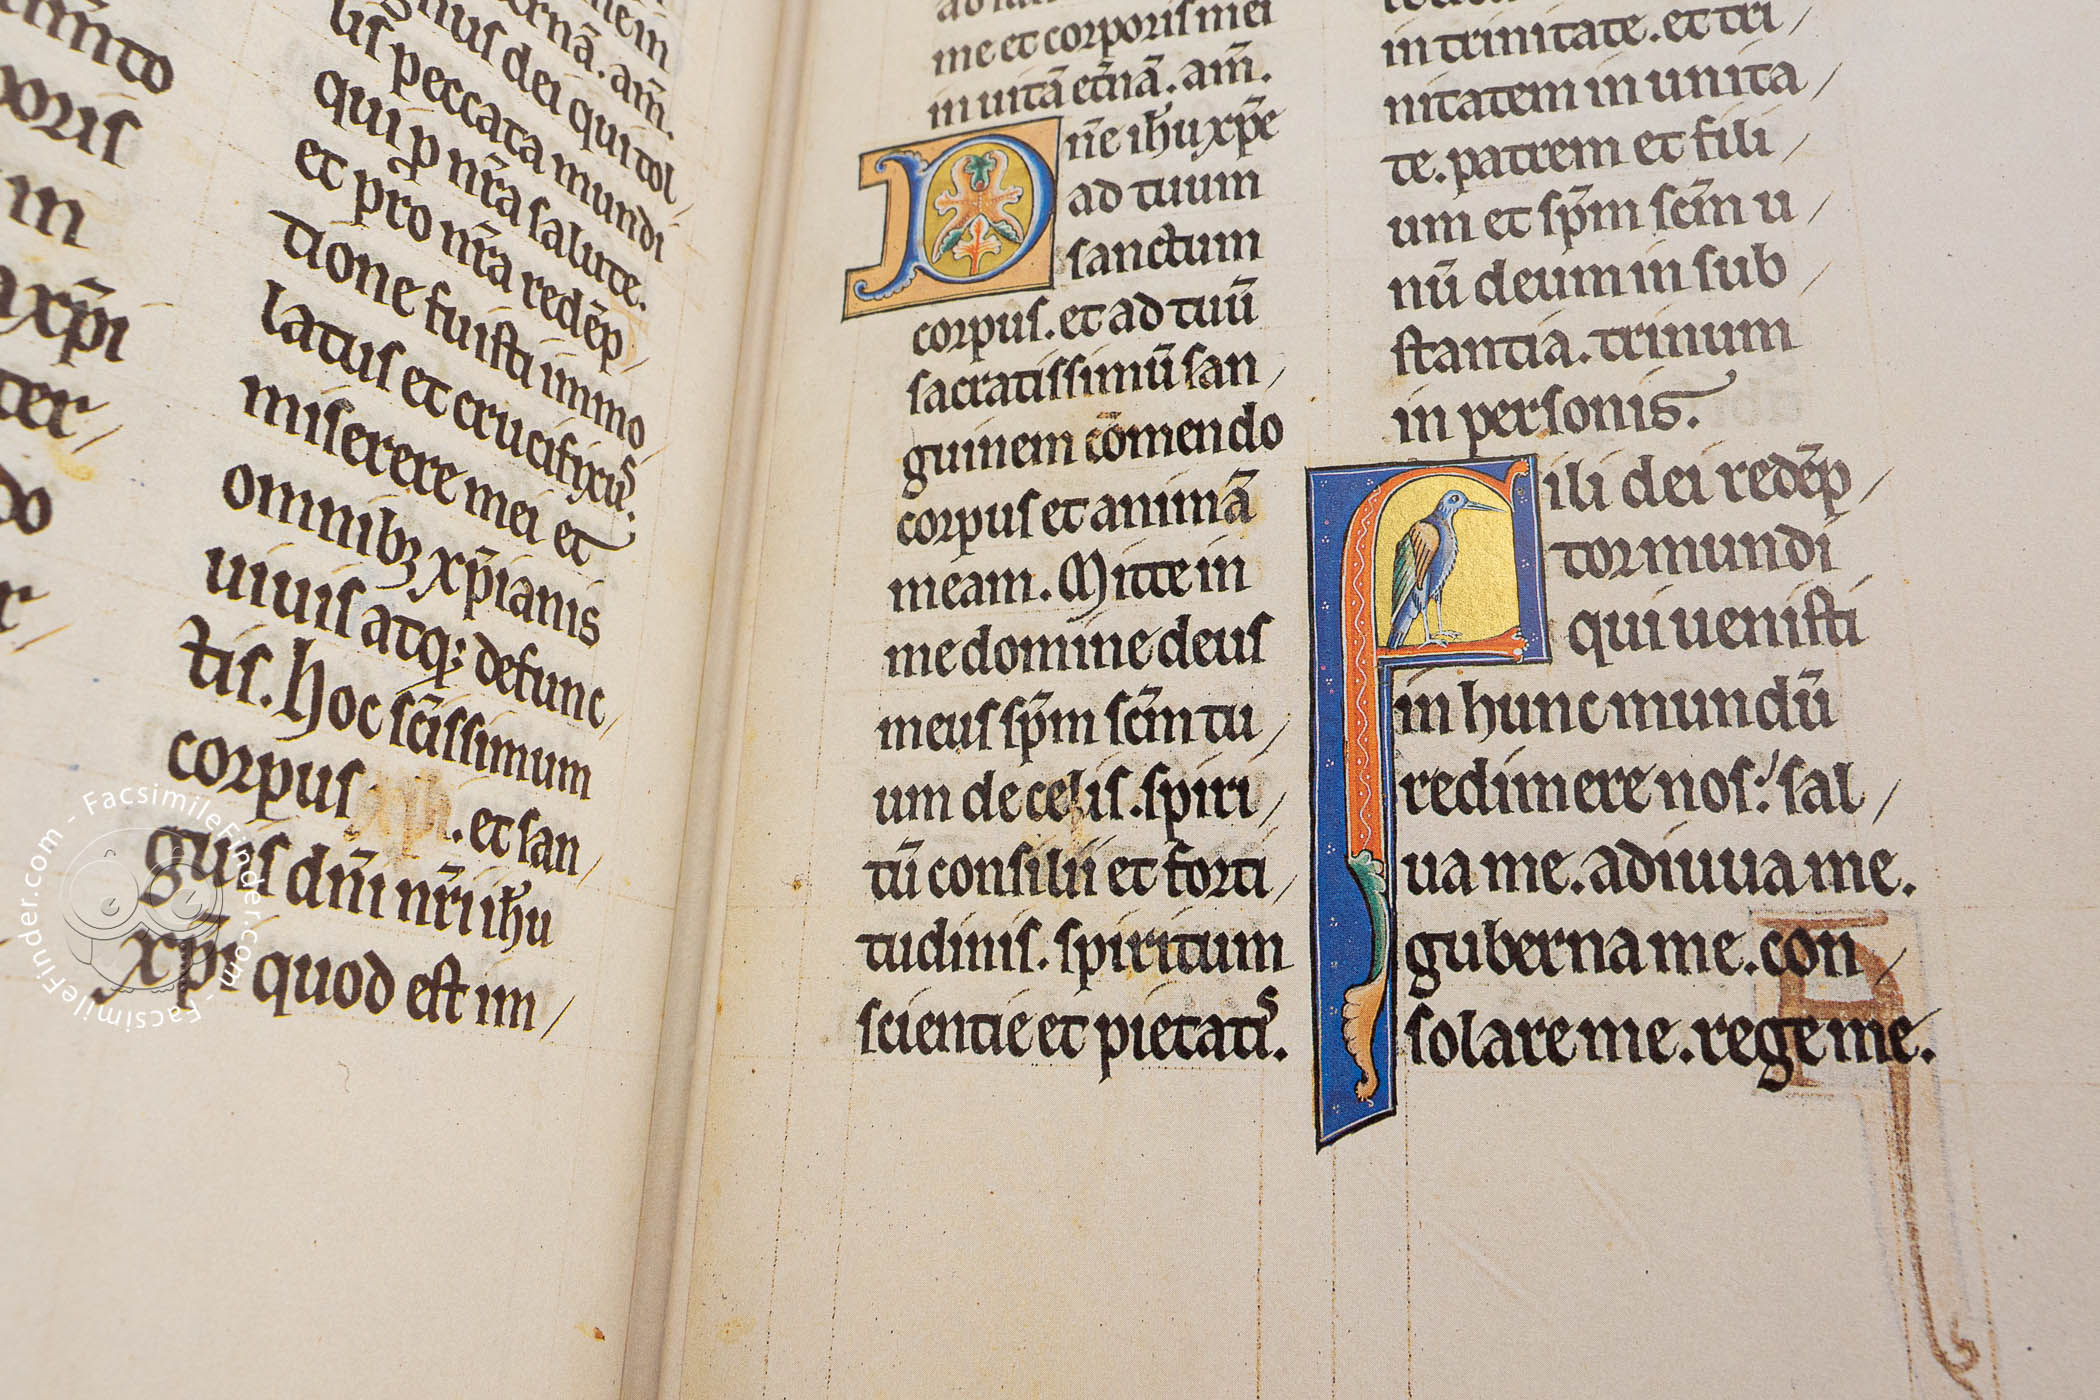 m̄to
poris
m
axp̄i
ter
do
r
me in
erna. am̄.
nus dei qui tol
lis peccata mundi
qui p̱ nr̄a salute.
et pro nr̄a redēp
tione fuisti immo
latus et crucifixus.
miserere mei et
omnibꝫ xp̄ianis
uiuis atq; defunc
tis. hoc scīssimum
corpus xp̄i. et san
guis dn̄i nr̄i ih̄u
xp̄i quod est im
me et corporis mei
in uitā et̄nā. am̄.
Dn̄e ih̄u xp̄e
ad tuum
sanctum
corpus. et ad tuū
sacratissimū san
guinem cōmendo
corpus et animā
meam. Mitte in
me domine deus
meus sp̄m sc̄m tu
um de celis. spiri
tū consilii et forti
tudinis. spiritum
scientie et pietatis.
in trinitate. et tri
nitatem in unita
te. patrem et fili
um et sp̄m sc̄m u
nū deum in sub
stantia. trinum
in personis.
Fili dei redēp
tor mundi
qui uenisti
in hunc mundū
redimere nos: sal
ua me. adiuua me.
guberna me. con
solare me. rege me.
FacsimileFinder.com - FacsimileFinder.com - FacsimileFinder.com